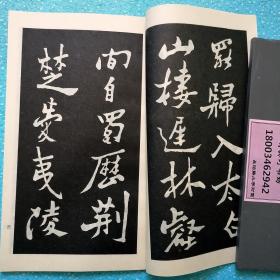 羅歸入太白
山棲遲林壑
間自蜀歷荆
楚夷陵
18003462942